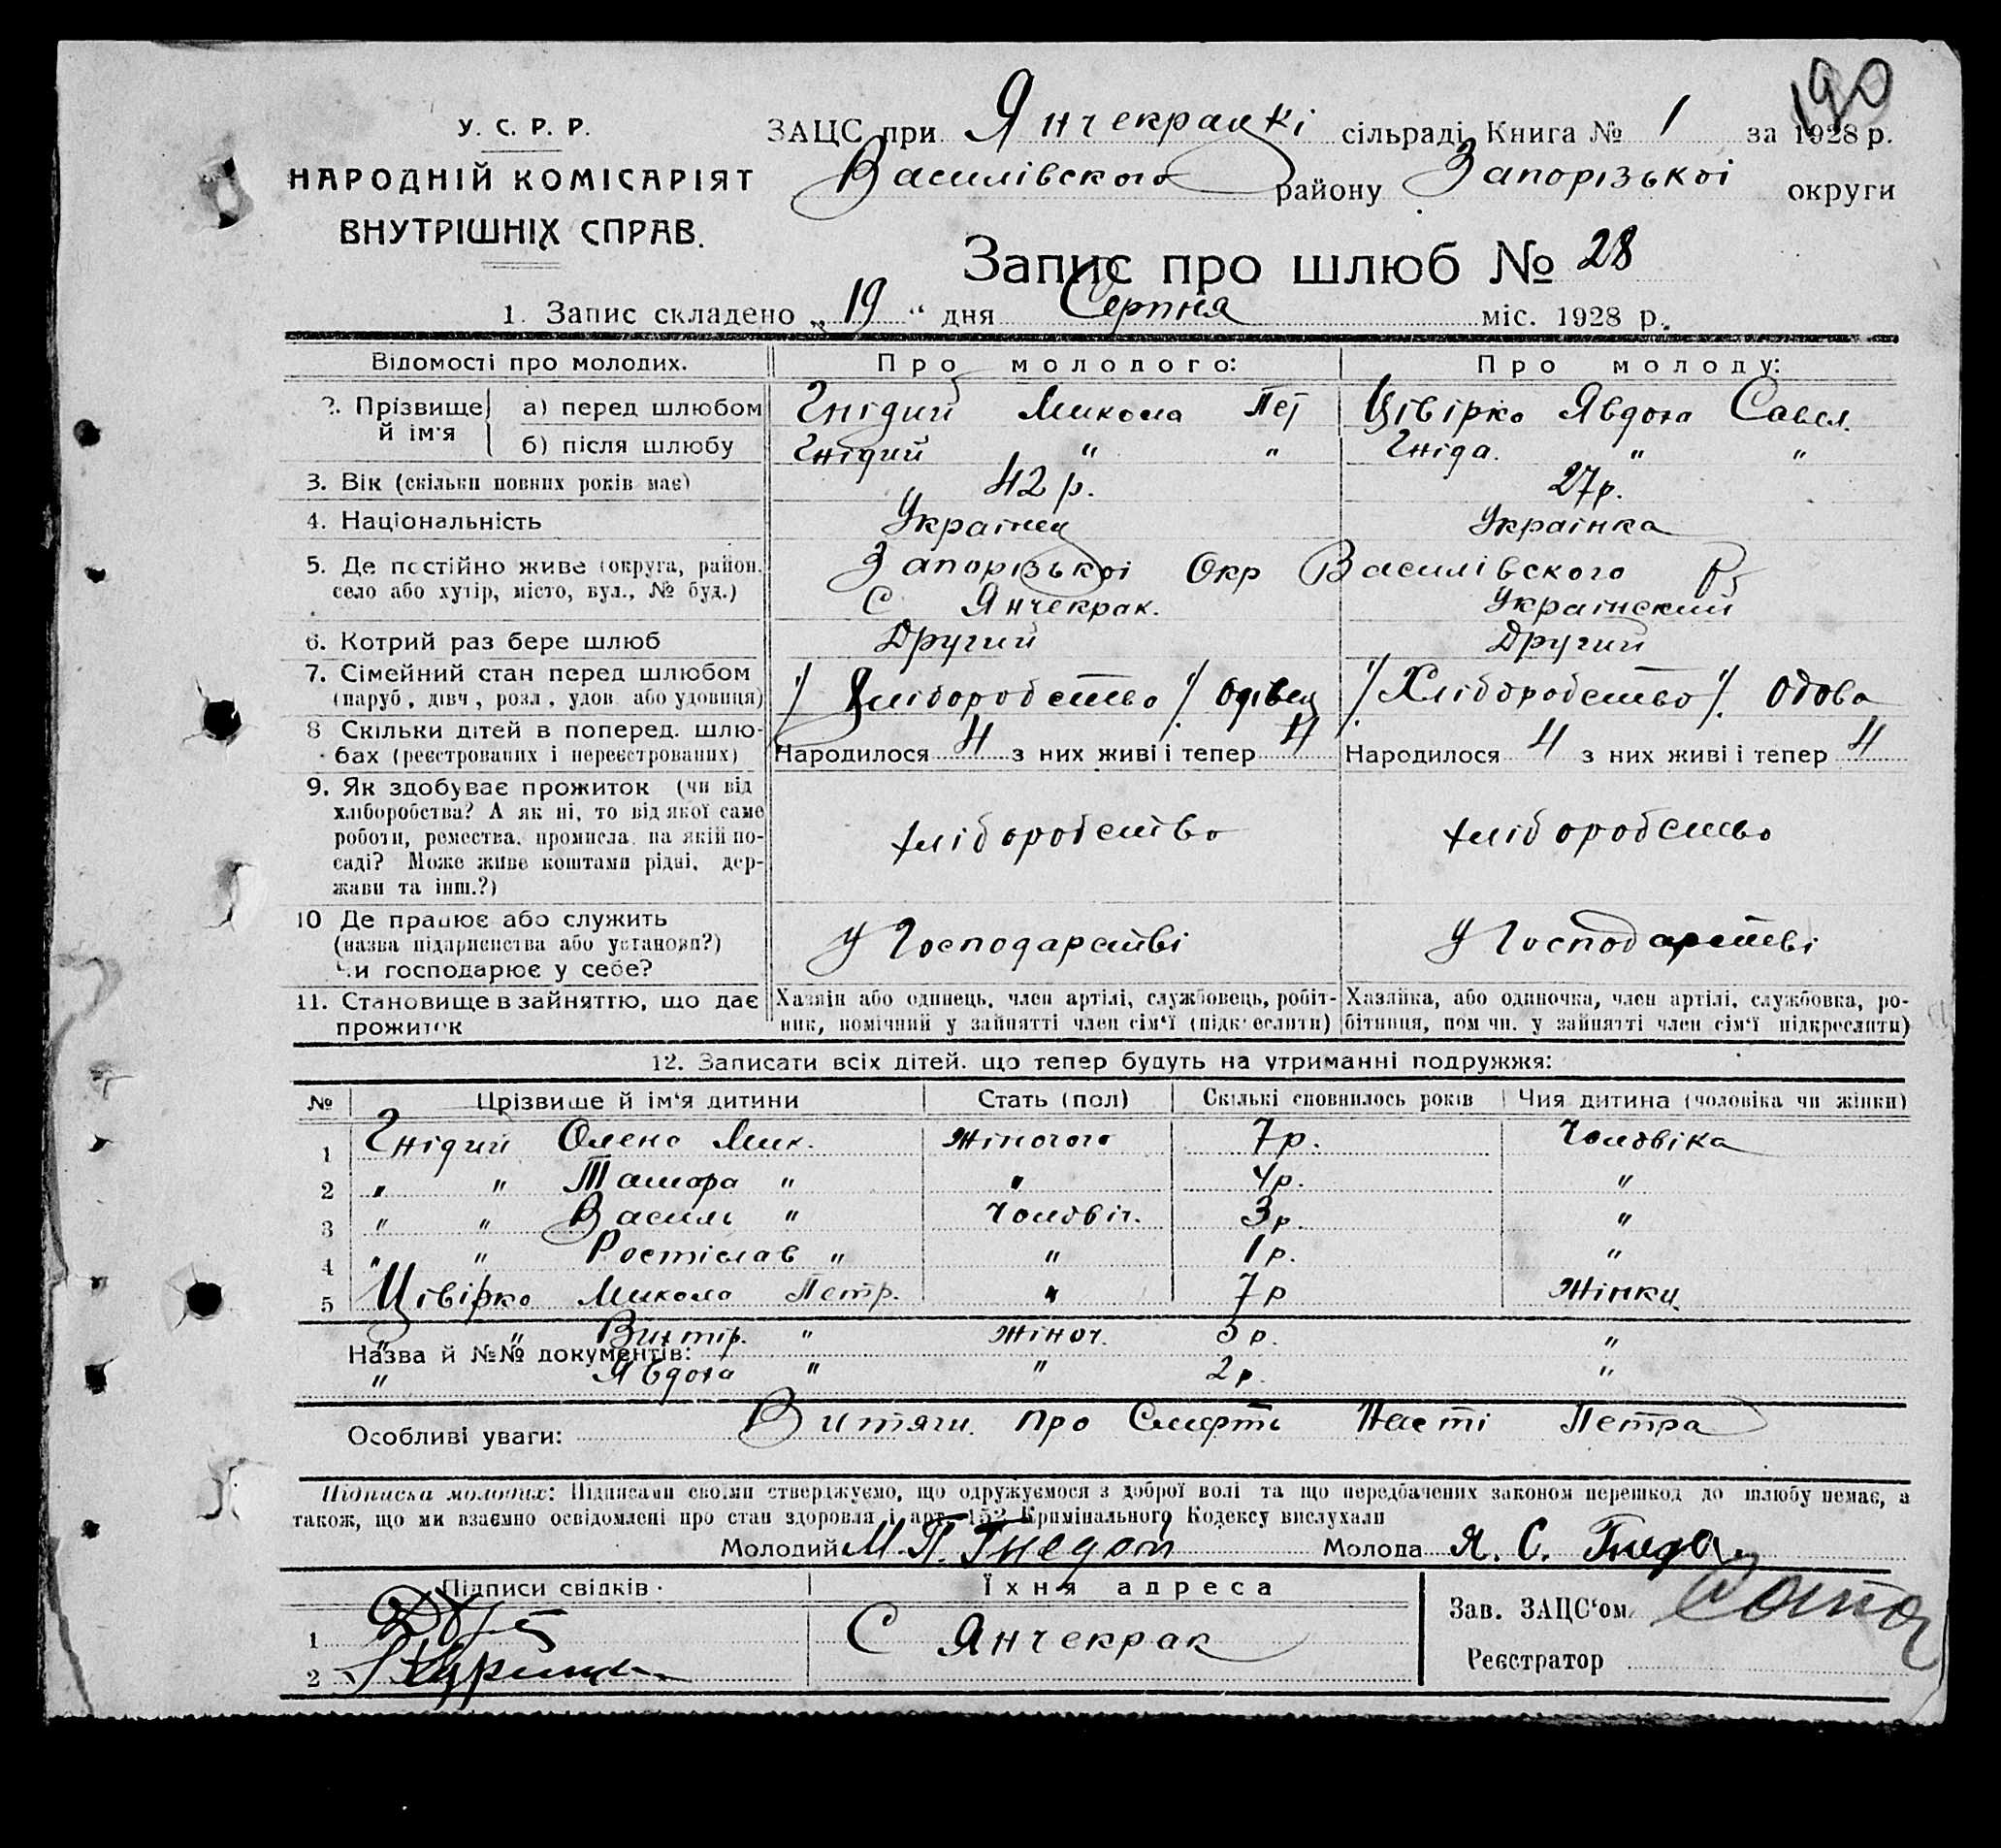 190
У. С. Р. Р.
НАРОДНІЙ КОМІСАРІЯТ
ВНУТРІШНІХ СПРАВ.
ЗАЦС при Янчекрацкі сільраді Книга № 1 за 1928 р.
Василівского району Запорізькоі округи
Запис про шлюб № 28
1. Запис складено „ 19 “ дня Серпня міс. 1928 р.
Відомості про молодих. Про молодого: Про молоду:
2. Прізвище й ім'я а) перед шлюбом Гнідий Микола Пет Цівірко Явдоха Савел.
б) після шлюбу Гнідий " " Гніда. " "
3. Вік (скільки повних років має) 42 р. 27 р.
4. Національність Украінец Украінка
5. Де постійно живе (округа, район, Запорізькоі Окр Василівского
село або хутір, місто, вул., № буд.) С Янчекрак. Украінский
6. Котрий раз бере шлюб Другий Другий
7. Сімейний стан перед шлюбом
(паруб, дівч, розл, удов. або удовиця) / Хліборобство /. Одівец /Хліборобство/. Одова
8 Скільки дітей в поперед. шлю-
бах (реєстрованих і нереєстрованих) Народилося 4 з них живі і тепер 4 Народилося 4 з них живі і тепер 4
9. Як здобуває прожиток (чи від
хліборобства? А як ні, то від якої саме
роботи, ремества, промисла, на якій по- хліборобство хліборобство
саді? Може живе коштами рідні, дер-
жави та інш.?)
10 Де працює або служить
(назва підприємства або установи?) У Господарстві У Господарстві
Чи господарює у себе?
11. Становище в зайняттю, що дає Хазяїн або одинець, член артілі, службовець, робіт- Хазяйка, або одиночка, член артілі, службовка, ро-
прожиток ник, помічний у зайнятті член сім'ї (підкреслити) бітниця, пом чн. у зайнятті член сім'ї підкреслити)
12. Записати всіх дітей, що тепер будуть на утриманні подружжя:
№ Прізвище й ім'я дитини Стать (пол) Скількі сповнилось років Чия дитина (чоловіка чи жінки)
1 Гнідий Олена Мик. Жіночого 7р. Чоловіка
2 " " Тамара " " 4р. "
3 " " Василь " Чоловіч. 3р. "
4 " " Ростіслав " " 1 р. "
5 Цівірко Микола Петр. " 7р Жінки
" " " Жіноч. р. "
Назва й №№ документів:
" Явдоха " " 2р. "
Особливі уваги: Витяги про Смерть Насті Петра
Підписка молодих: Підписами своїми стверджуємо, що одружуємося з доброї волі та що передбачених законом перешкод до шлюбу немає, а
також, що ми взаємно освідомлені про стан здоровля і арт. 152 Кримінального Кодексу вислухали
Молодий М.П. Гнедой Молода Я. С. Гнеда.
Підписи свідків Їхня адреса
Зав. ЗАЦС'ом
1 С Янчекрак
Реєстратор
2